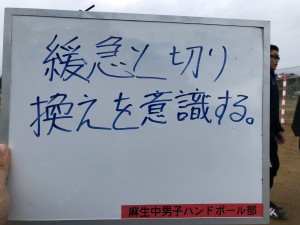 緩急と切り
換えを意識する。
麻生中男子ハンドボール部